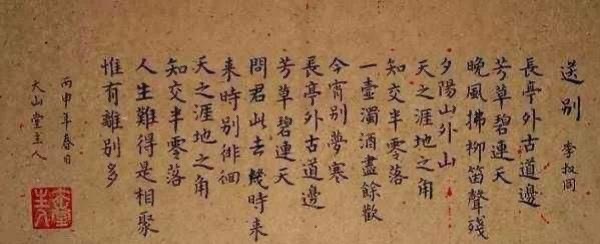 送別 李叔同
長亭外古道邊
芳草碧連天
晚風拂柳笛聲殘
夕陽山外山
天之涯地之角
知交半零落
一壺濁酒盡餘歡
今宵別夢寒
長亭外古道邊
芳草碧連天
問君此去幾時来
来時別徘徊
天之涯地之角
知交半零落
人生難得是相聚
惟有離別多
丙申年春日
大山堂主人